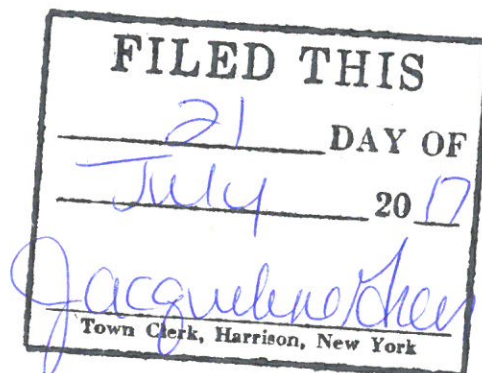 FILED THIS
21 DAY OF
July 2017
Jacqueline
Town Clerk, Harrison, New York